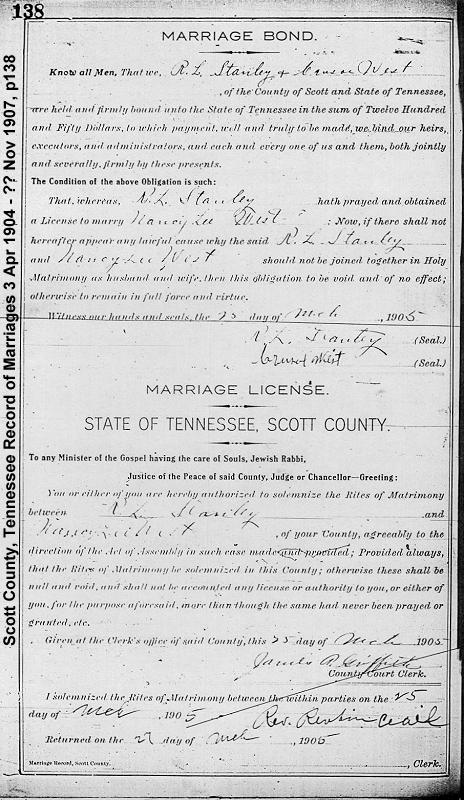 138
Scott County, Tennessee Record of Marriages 3 Apr 1904 - ?? Nov 1907, p138
MARRIAGE BOND.
Know all Men, That we, R. L. Stanley & Crusoe West
, of the County of Scott and State of Tennessee,
are held and firmly bound unto the State of Tennessee in the sum of Twelve Hundred
and Fifty Dollars, to which payment, well and truly to be made, we bind our heirs,
executors, and administrators, and each and every one of us and them, both jointly
and severally, firmly by these presents.
The Condition of the above Obligation is such:
That, whereas, R. L. Stanley hath prayed and obtained
a License to marry Nancy Lee West : Now, if there shall not
hereafter appear any lawful cause why the said R. L. Stanley
and Nancy Lee West should not be joined together in Holy
Matrimony as husband and wife, then this obligation to be void and of no effect;
otherwise to remain in full force and virtue.
Witness our hands and seals, the 25 day of Mch , 1905
R. L. Stanley (Seal.)
West (Seal.)
MARRIAGE LICENSE.
STATE OF TENNESSEE, SCOTT COUNTY.
To any Minister of the Gospel having the care of Souls, Jewish Rabbi,
Justice of the Peace of said County, Judge or Chancellor—Greeting:
You or either of you are hereby authorized to solemnize the Rites of Matrimony
between R. L. Stanley and
Nancy Lee West , of your County, agreeably to the
direction of the Act of Assembly in such case made and provided; Provided always,
that the Rites of Matrimony be solemnized in this County; otherwise these shall be
null and void, and shall not be accounted any license or authority to you, or either of
you, for the purpose aforesaid, more than though the same had never been prayed or
granted, etc.
Given at the Clerk's office of said County, this 25 day of Mch 1905
James Griffith
County Court Clerk.
I solemnized the Rites of Matrimony between the within parties on the 25
day of Mch , 1905 Rev.
Returned on the 27 day of Mch , 1905
Marriage Record, Scott County. , Clerk.